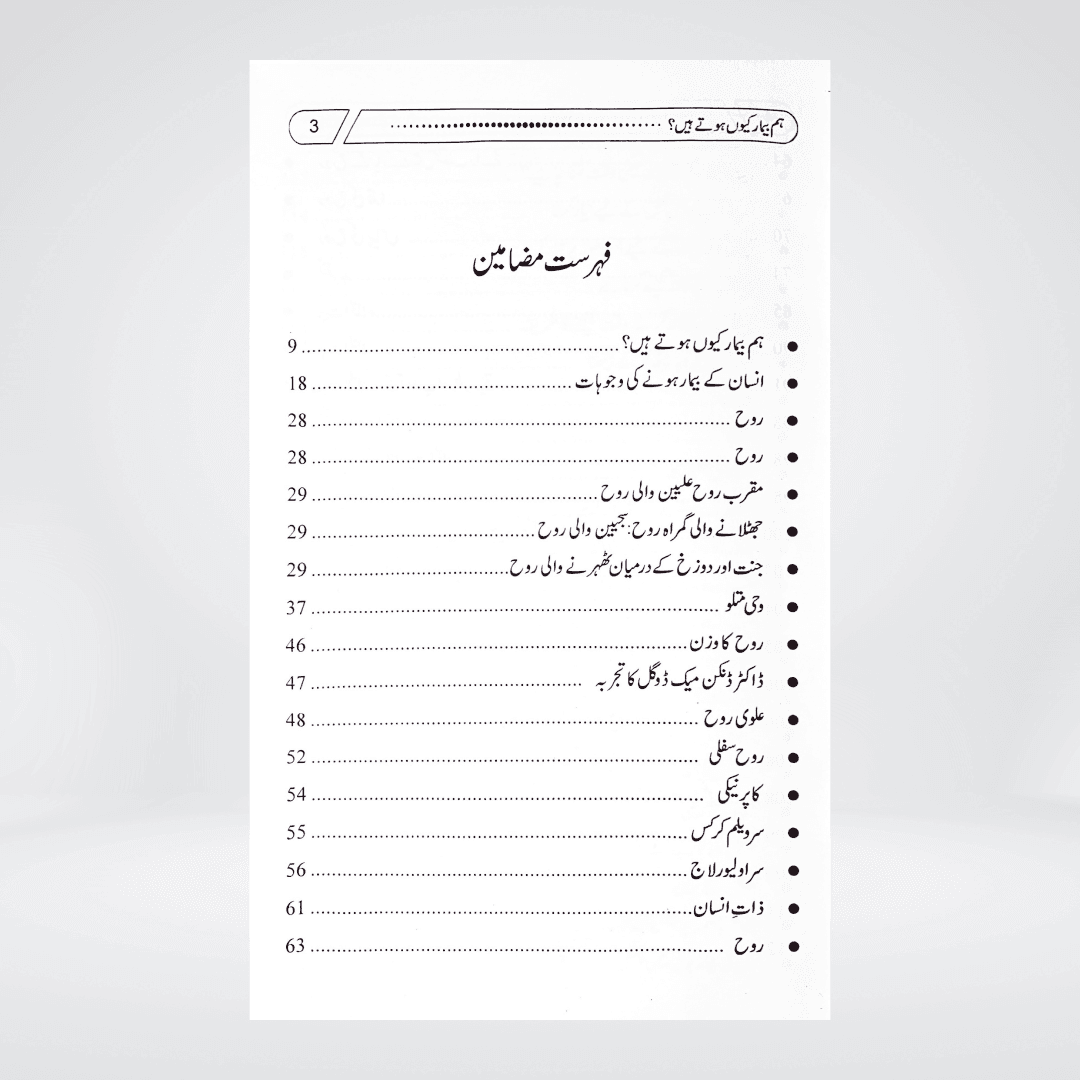 ہم بیمار کیوں ہوتے ہیں؟ 3
فہرست مضامین
ہم بیمار کیوں ہوتے ہیں؟ 9
انسان کے بیمار ہونے کی وجوہات 18
روح 28
روح 28
مقرب روح علیین والی روح 29
جھٹلانے والی گمراہ روح: سجیین والی روح 29
جنت اور دوزخ کے درمیان ٹھہرنے والی روح 29
وحی متلو 37
روح کا وزن 46
ڈاکٹر ڈنکن میک ڈوگل کا تجربہ 47
علوی روح 48
روح سفلی 52
کاپرنیکی 54
سر ویلم کرکس 55
سر اولیور لاج 56
ذاتِ انسان 61
روح 63